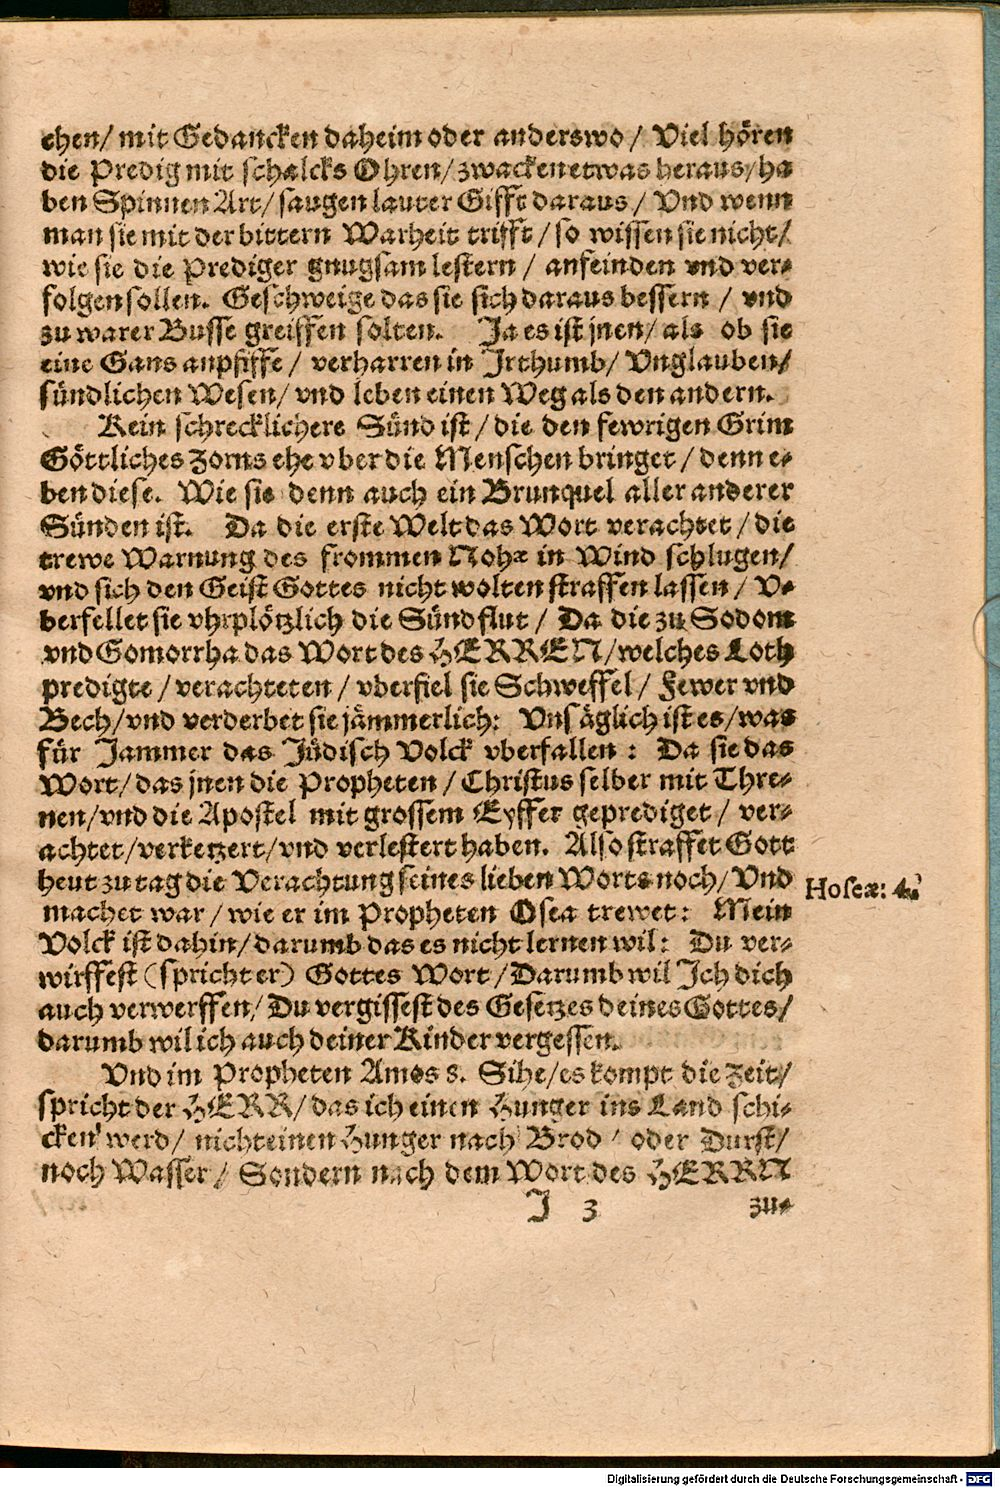 chen/ mit Gedancken daheim oder anderswo / Viel hören
die Predig mit schalcks Ohren/ zwacken etwas heraus/ ha
ben Spinnen Art/ saugen lauter Gifft daraus / Vnd wenn
man sie mit der bittern Warheit trifft / so wissen sie nicht/
wie sie die Prediger gnugsam lestern / anfeinden vnd ver-
folgen sollen. Geschweige das sie sich daraus bessern / vnd
zu warer Busse greiffen solten. Ja es ist jnen/ als ob sie
eine Gans anpfiffe / verharren in Irthumb/ Vnglauben/
sündlichen Wesen/ vnd leben einen Weg als den andern.
Kein schrecklichere Sünd ist / die den fewrigen Grim
Göttliches Zorns ehe vber die Menschen bringet / denn e-
ben diese. Wie sie denn auch ein Brunquel aller anderer
Sünden ist. Da die erste Welt das Wort verachtet / die
trewe Warnung des frommen Nohæ in Wind schlugen/
vnd sich den Geist Gottes nicht wolten straffen lassen / V-
berfellet sie vhrplötzlich die Sündflut / Da die zu Sodom
vnd Gomorrha das Wort des HERREN/ welches Loth
predigte / verachteten / vberfiel sie Schweffel / Fewer vnd
Bech/ vnd verderbet sie jämmerlich: Vnsäglich ist es/ was
für Jammer das Jüdisch Volck vberfallen : Da sie das
Wort/ das jnen die Propheten / Christus selber mit Thre-
nen/ vnd die Apostel mit grossem Eyffer geprediget / ver-
achtet/ verketzert/ vnd verlestert haben. Also straffet Gott
heut zu tag die Verachtung seines lieben Worts noch/ Vnd
machet war / wie er im Propheten Osea trewet: Mein
Volck ist dahin/ darumb das es nicht lernen wil: Du ver-
wirffest (spricht er) Gottes Wort / Darumb wil Ich dich
auch verwerffen/ Du vergissest des Gesetzes deines Gottes/
darumb wil ich auch deiner Kinder vergessen.
Hoseæ: 4.
Vnd im Propheten Amos 8. Sihe/ es kompt die Zeit/
spricht der HERR/ das ich einen Hunger ins Land schi-
cken werd/ nicht einen Hunger nach Brod / oder Durst/
noch Wasser / Sondern nach dem Wort des HERRN
J 3 zu-
Digitalisierung gefördert durch die Deutsche Forschungsgemeinschaft - DFG